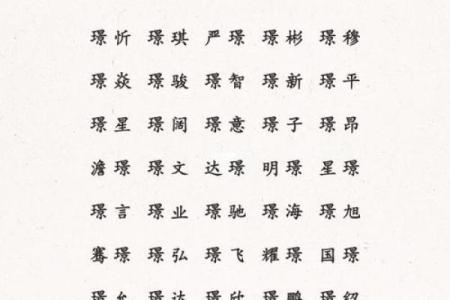 璟忻 璟琪 严璟 璟彬 璟穆
璟焱 璟骏 璟智 璟新 璟平
璟星 璟阔 璟意 璟子 璟昂
澹璟 璟文 达璟 明璟 星璟
璟言 璟业 璟驰 璟海 璟旭
骞璟 璟弘 璟飞 耀璟 国璟
璟允 璟达 璟欣 璟鹏 璟绍